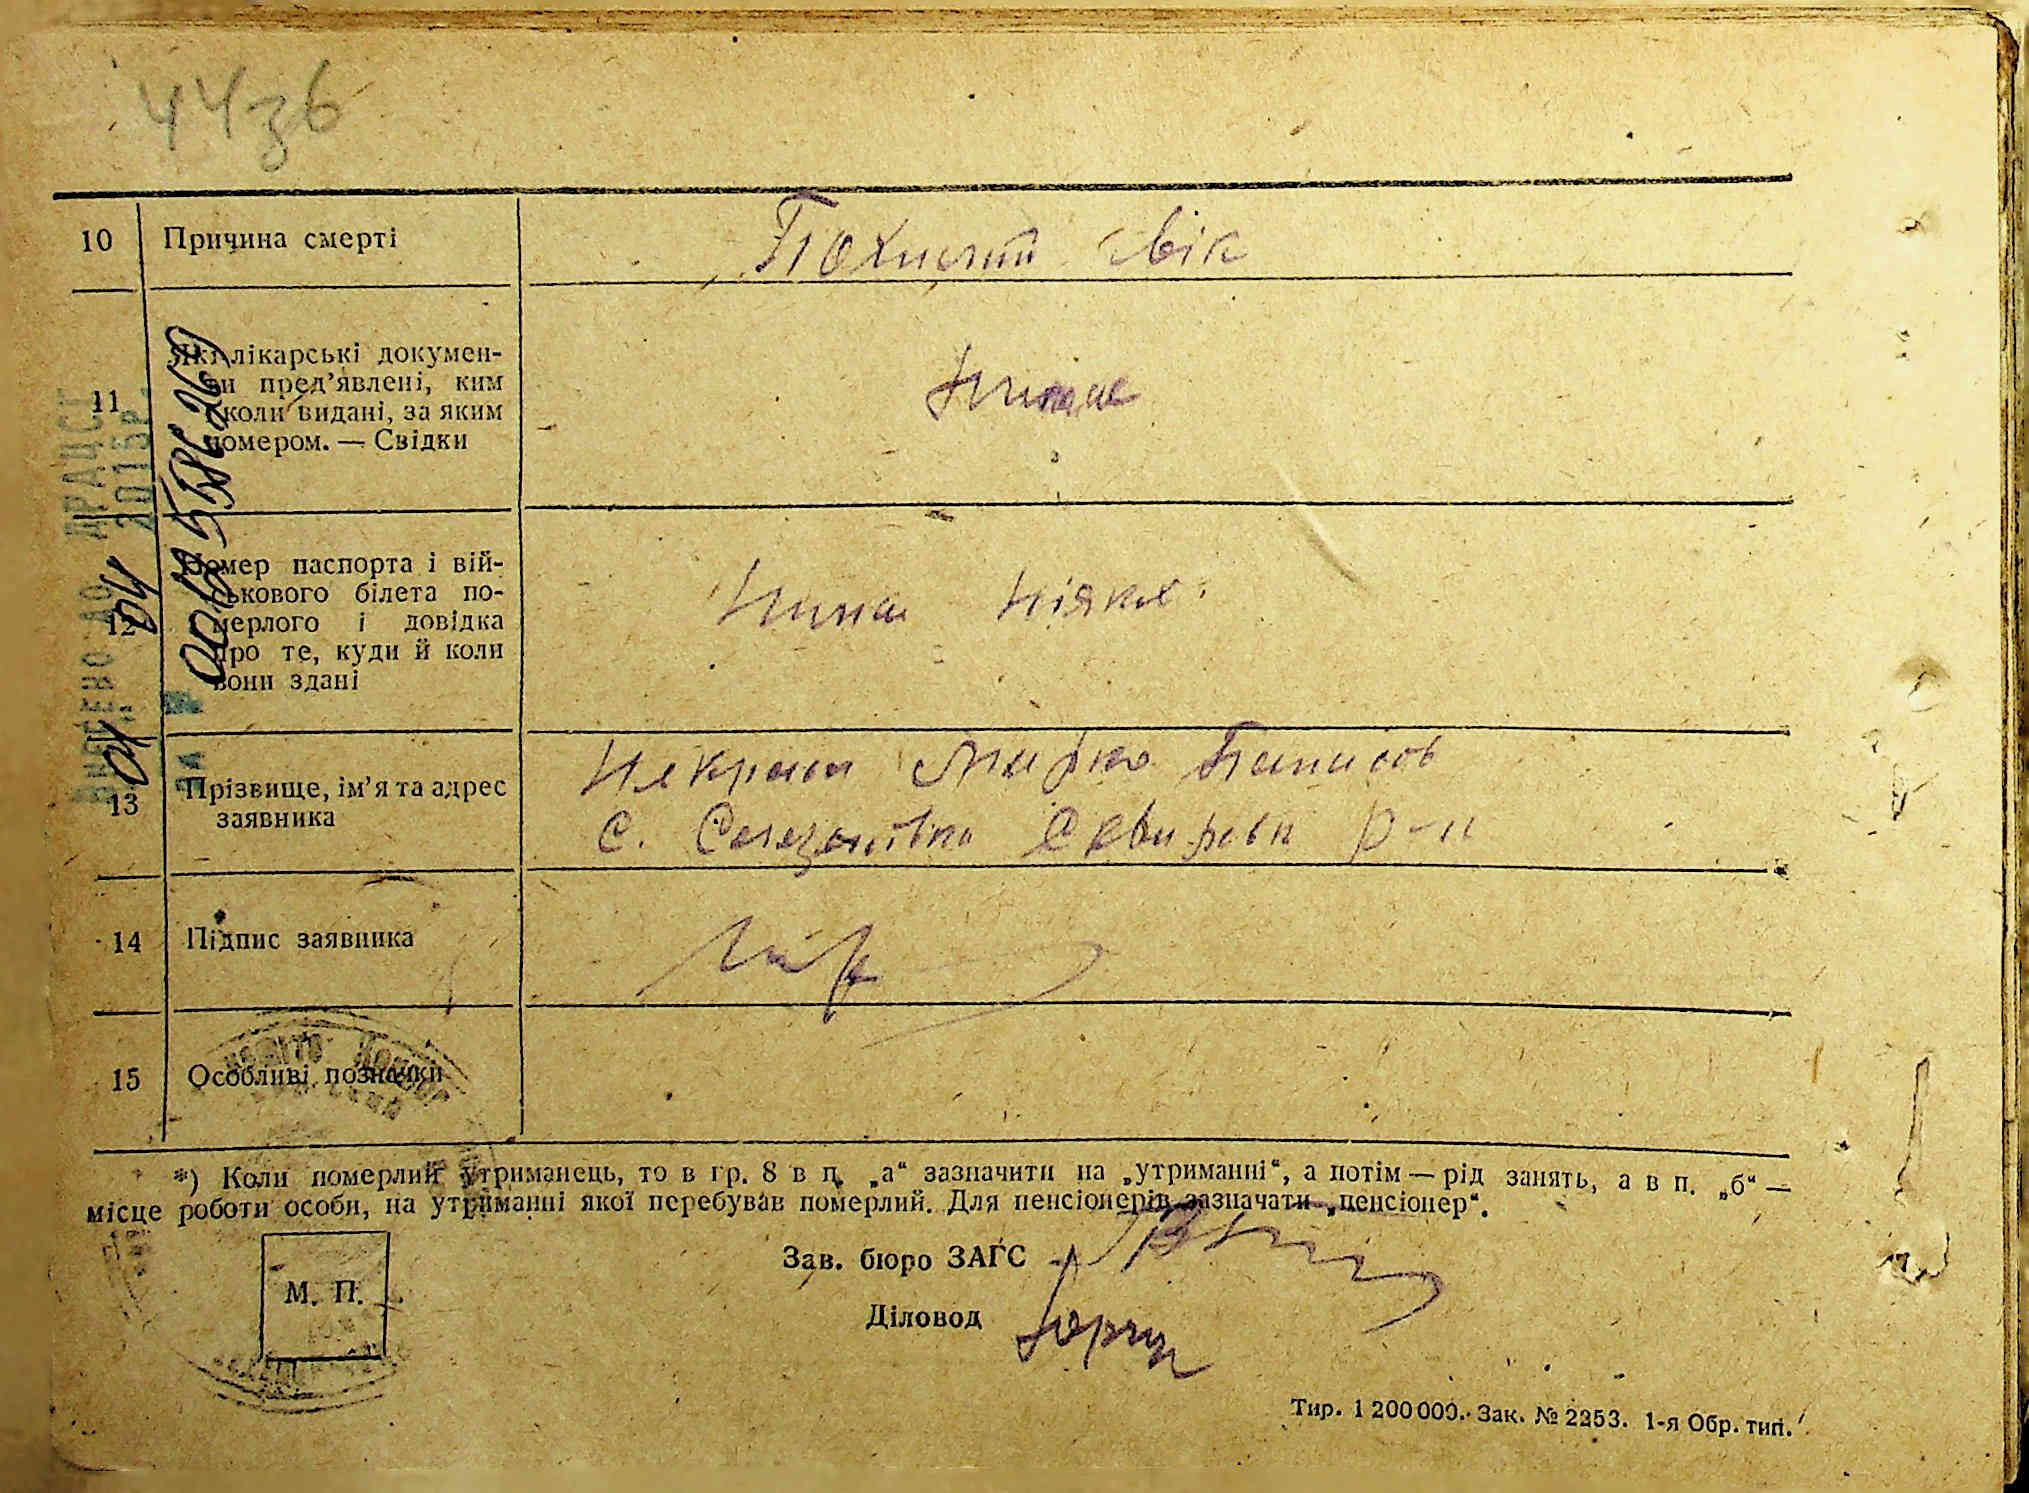 44зв
10 Причина смерті Похилий вік
11 Які лікарські докумен-
ти пред’явлені, ким
і коли видані, за яким
номером. — Свідки
Немає
12 Номер паспорта і вій-
ськового білета по-
мерлого і довідка
про те, куди й коли
вони здані
Нема ніяких
13 Прізвище, ім’я та адрес
заявника
Некраш Марко
с. Селезенівка Сквирськ р-н
14 Підпис заявника
15 Особливі позначки
*) Коли померлий утриманець, то в гр. 8 в п. „а“ зазначити на „утриманні“, а потім — рід занять, а в п. „б“ —
місце роботи особи, на утриманні якої перебував померлий. Для пенсіонерів зазначати „пенсіонер“.
Зав. бюро ЗАГС
М. П.
Діловод
Тир. 1 200 000. Зак. № 2253. 1-я Обр. тип.
ВНЕСЕНО ДО ДРАЦСГ
04 04 2013р.
за № 00125586269